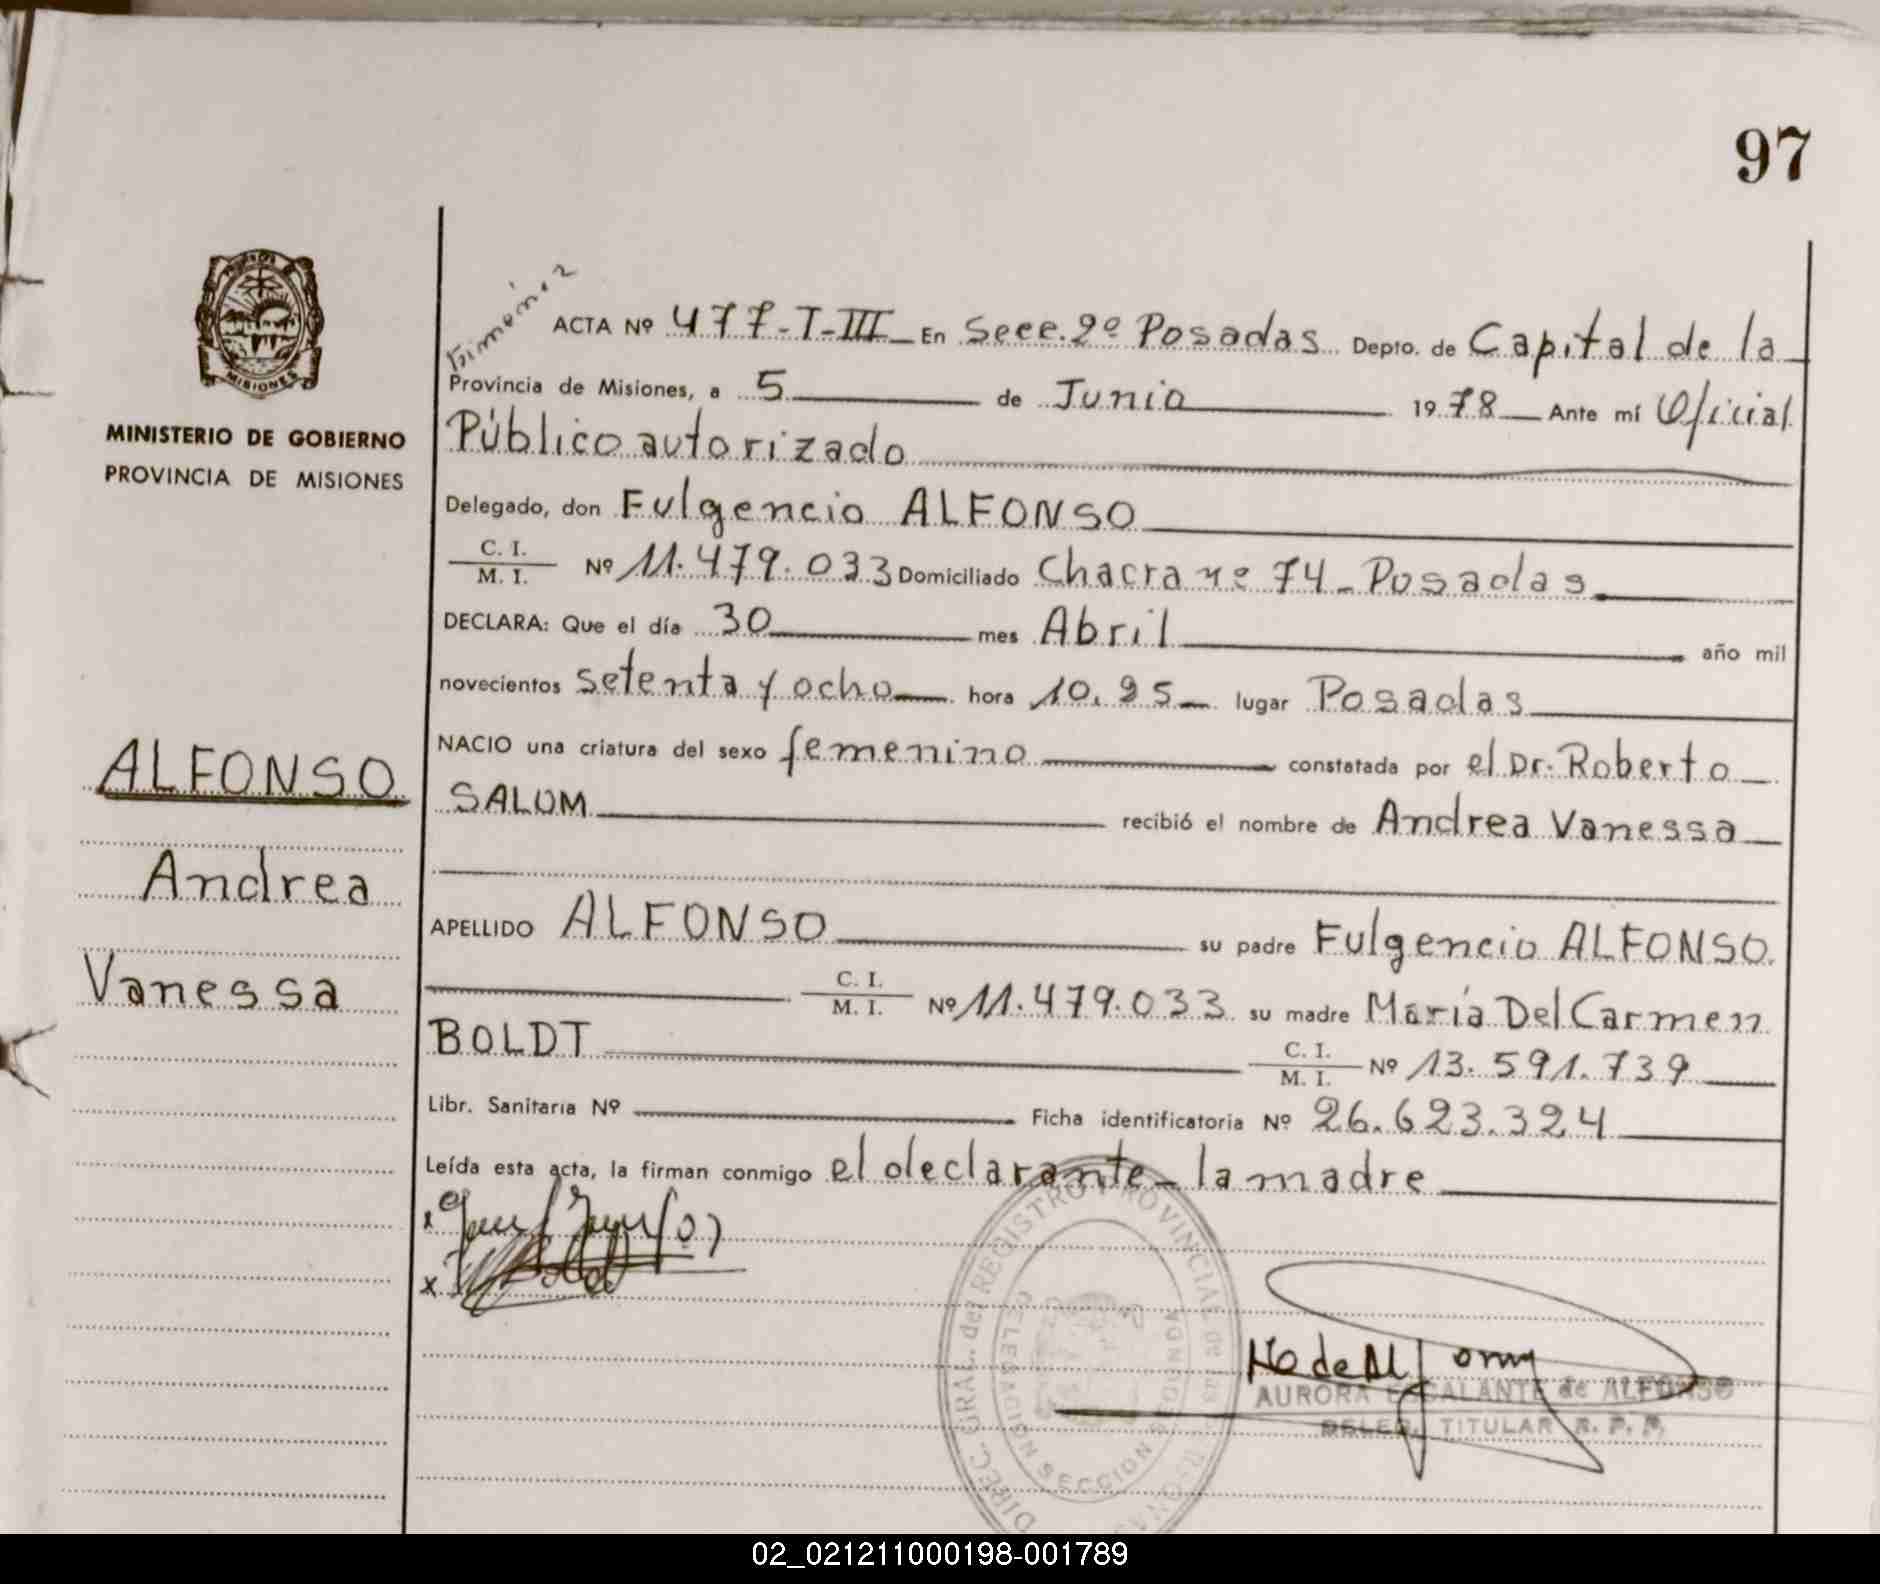 97
MISIONES
MINISTERIO DE GOBIERNO
PROVINCIA DE MISIONES
ALFONSO
Andrea
Vanessa
ACTA Nº 477-T-III En Secc. 2º Posadas Depto. de Capital de la
Provincia de Misiones, a 5 de Junio 1978 Ante mí Oficial
Público autorizado
Delegado, don Fulgencio ALFONSO
C. I.
M. I. Nº 11.479.033 Domiciliado Chacra nº 74-Posadas
DECLARA: Que el día 30 mes Abril año mil
novecientos setenta y ocho hora 10,25 lugar Posadas
NACIO una criatura del sexo femenino constatada por el Dr. Roberto
SALOM recibió el nombre de Andrea Vanessa
APELLIDO ALFONSO su padre Fulgencio ALFONSO.
C. I.
M. I. Nº 11.479.033 su madre María Del Carmen
BOLDT C. I.
M. I. Nº 13.591.739
Libr. Sanitaria Nº Ficha identificatoria Nº 26.623.324
Leída esta acta, la firman conmigo el declarante - la madre
x
x
DIREC. GRAL. del REGISTRO PROVINCIAL de las PERSONAS
DELEGACION SECCION SEGUNDA
AURORA ESCALANTE de ALFONSO
DELEG. TITULAR R. P. P.
02_021211000198-001789